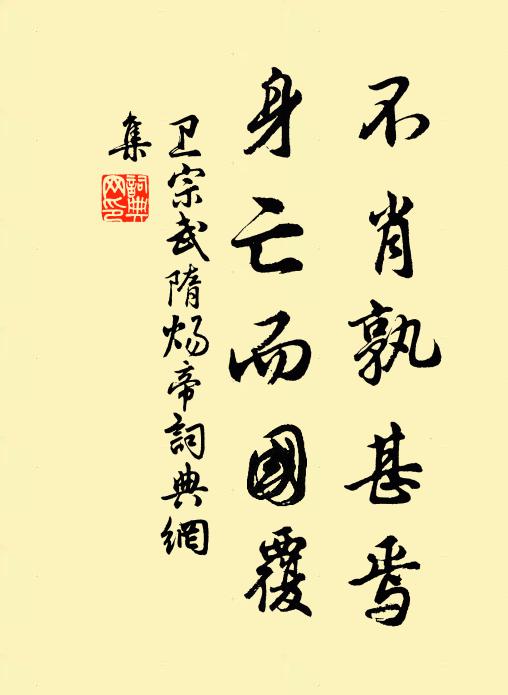 不肖孰甚焉
身亡而國覆
卫宗武隋炀帝詞典網
集
詞典网印